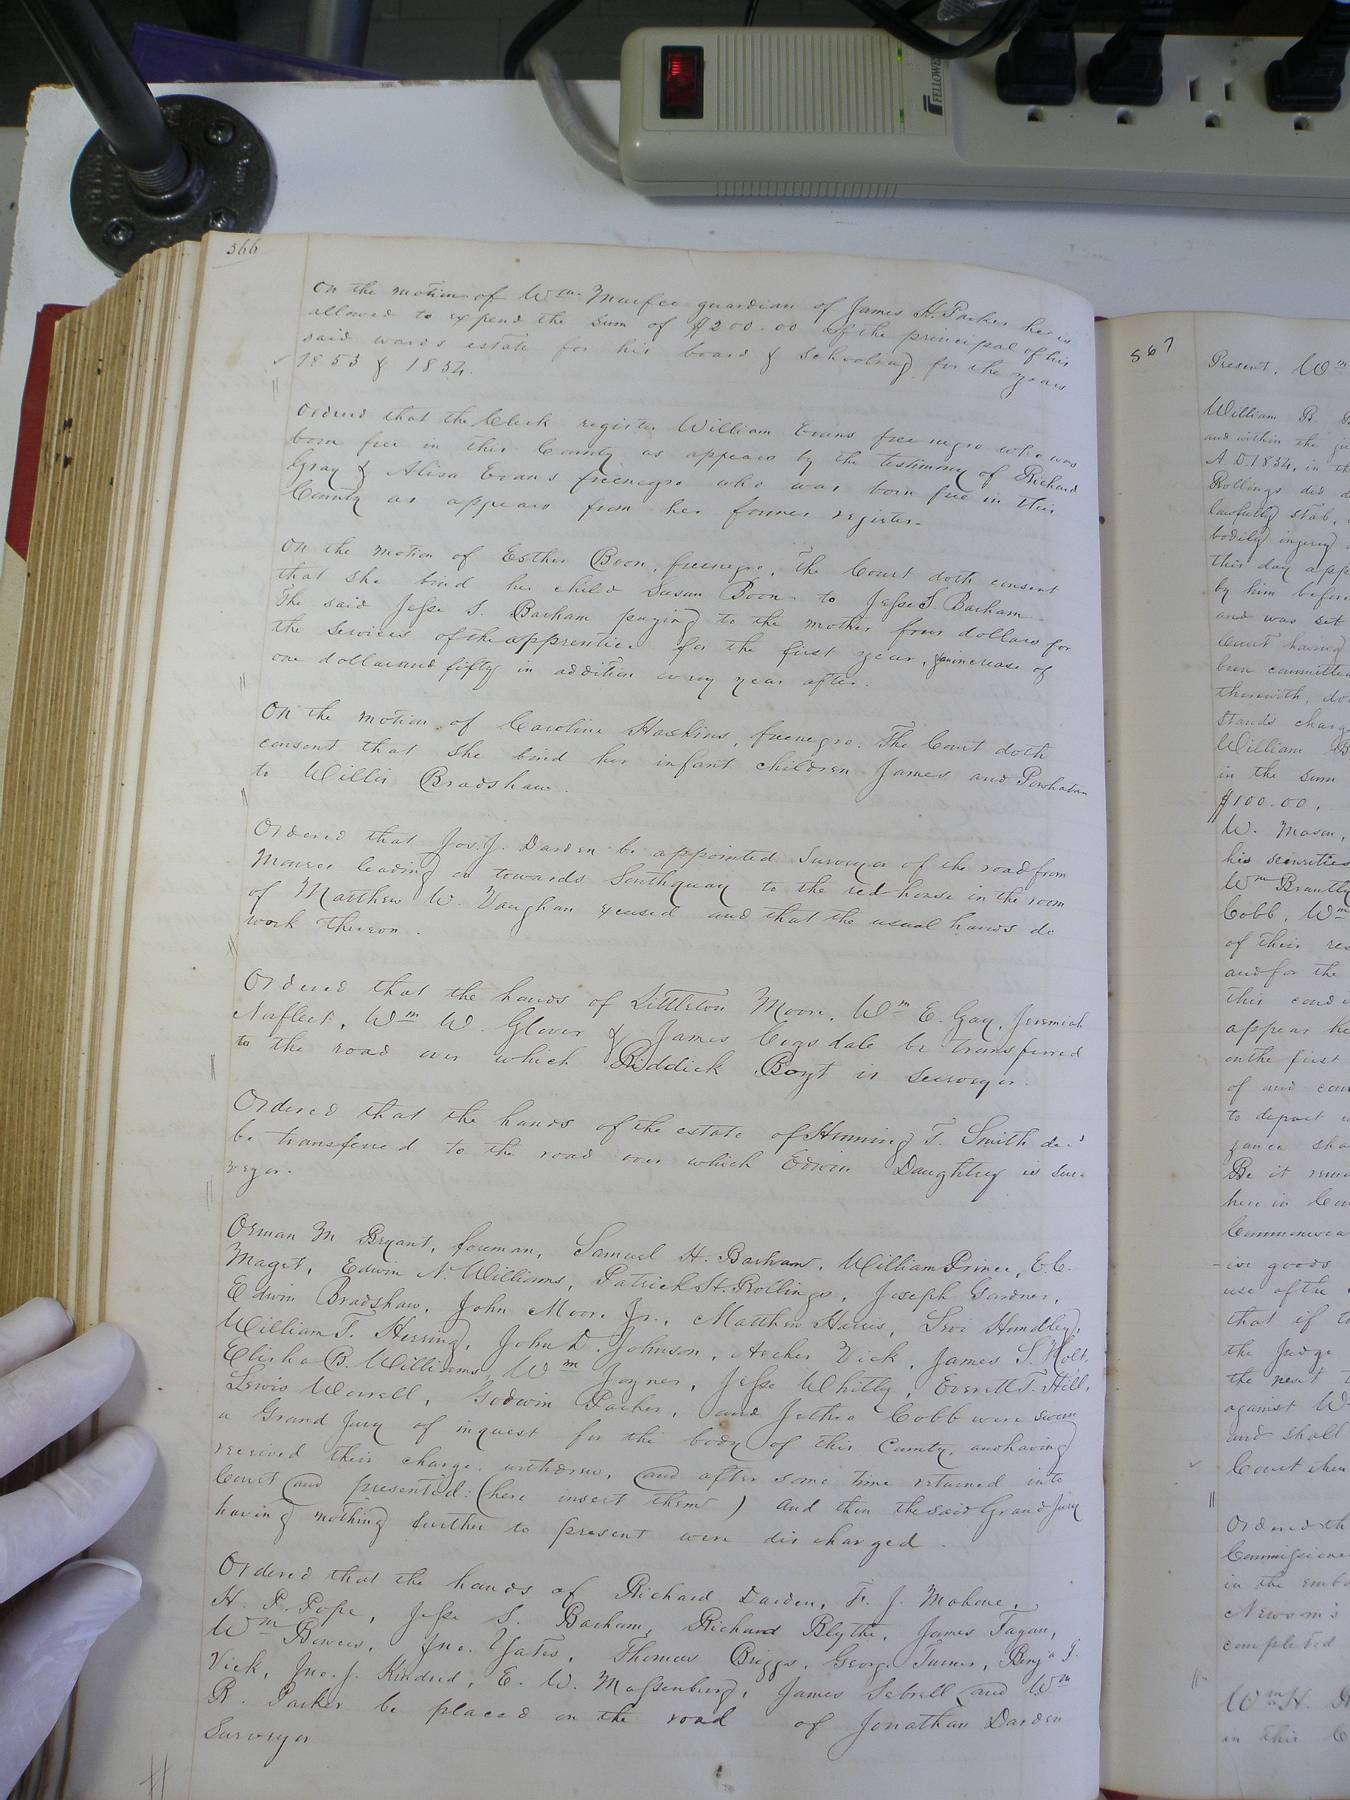 FELLOWES
566
On the motion of Wm. Murfee guardian of James H. Parker he is
allowed to expend the sum of $200.00 of the principal of his
said wards estate for his board & schooling for the years
1853 & 1854.
Ordered that the Clerk register William Evans free negro who was
born free in this County as appears by the testimony of Richard
Gray & Alisa Evans freenegro who was born free in this
County as appears from her former register.
On the motion of Esther Boon, freenegro, The Court doth consent
that she bind her child Susan Boon to Jesse S. Barham
The said Jesse S. Barham paying to the mother four dollars for
the services of the apprentice for the first year, & an increase of
one dollar and fifty in addition every year after.
On the motion of Caroline Haskins, freenegro. The Court doth
consent that she bind her infant children James and Powhatan
to Willis Bradshaw.
Ordered that Jos. J. Darden be appointed Surveyor of the road from
Monroe leading on towards Southquay to the red house in the room
of Matthew W. Vaughan excused and that the usual hands do
work thereon.
Ordered that the hands of Littleton Moore, Wm E. Gay, Jeremiah
Norfleet, Wm W. Glover & James Cogsdale be transferred
to the road over which Riddick Boyt is surveyor.
Ordered that the hands of the estate of Henning T. Smith decd
be transferred to the road over which Edwin Daughtrey is sur-
veyor.
Orman M Bryant, foreman, Samuel H. Barham, William Prince, E.C.
Maget, Edwin N. Williams, Patrick H. Rollings, Joseph Gardner,
Edwin Bradshaw, John Moore Jr., Matthew Harris, Levi Humdley,
William T. Herring, John D. Johnson, Archer Vick, James S. Holt,
Elisha B. Williams, Wm Joyner, Jesse Whitly, Everett T. Hill,
Lewis Worrell, Godwin Parker, and Jethro Cobb were sworn
a Grand Jury of inquest for the body of this County, and having
received their charge, withdrew, and after some time returned into
Court and presented: (here insert them) and then the said Grand Jury
having nothing further to present were discharged.
Ordered that the hands of Richard Darden, Fr. J. Mahone,
H. P. Pope, Jesse S. Barham, Richard Blythe, James Fagan,
Wm Bowers, Jno. Yates, Thomas Briggs, George Turner, Benja J.
Vick, Jno. J. Kindred, E. W. Massenburg, James Sebrell and Wm
R. Parker be placed on the road of Jonathan Darden
Surveyor
567
Present. Wm
William B.
and within the
A.D. 1854, in the
Rollings did
lawfully stab,
bodily injury
this day
by him before
and was set
Court having
been committed
therewith, do
stands charg
William
in the sum
$100.00.
W. Mason,
his securities
Wm Brantly
Cobb, Wm
of their
and for the
this
appear he
on the first
of and
to depart
Be it
here in
Commonwea
goods
use of the
that if
the Judge
the next
against W
and shall
Court then
Ordered th
Commissione
in the
Newsom's
completed
Wm H.
in this C